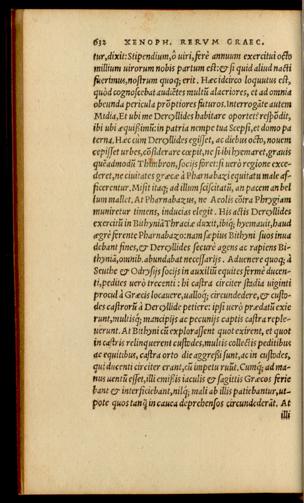 632 XENOPH. RERVM GRAEC.
tur, dixit: Stipendium, ô uiri, ferè annuum exercitui octo
millium uirorum nobis partum est: & si quid aliud nacti
fuerimus, nostrum quoq; erit. Hæc idcirco loquutus est,
quòd cognoscebat audẽtes multũ alacriores, et ad omnia
obeunda pericula prõptiores futuros. Interrogãte autem
Midia, Et ubi me Dercyllides habitare oportet? respõdit,
ibi ubi æquißimũ: in patria nempe tua Scepsi, et domo pa
terna. Hæc cùm Dercyllides egißet, ac diebus octo, nouem
cepisset urbes, cõsiderare cœpit, ne si ibi hyemaret, grauis
quẽadmodũ Thimbron, socijs foret: si uerò regione exce-
deret, ne ciuitates græcæ à Pharnabazi equitatu male af-
ficerentur. Misit itaq; ad illum sciscitatũ, an pacem an bel
lum mallet. At Pharnabazus, ne Aeolis cõtra Phrygiam
muniretur timens, inducias elegit. His actis Dercyllides
exercitũ in Bithyniã Thraciæ duxit, ibiq; hyemauit, haud
ægrè ferente Pharnabazo: nam sæpius Bithyni suos inua
debant fines, & Dercyllides securè agens ac rapiens Bi-
thyniã, omnib. abundabat necessarijs. Aduenere quoq; à
Seuthe & Odrysijs socijs in auxiliũ equites fermè ducen-
ti, pedites uerò trecenti: hi castra circiter stadia uiginti
procul à Græcis locauere, ualloq; circundedere, & custo-
des castrorũ à Dercyllide petiere: ipsi uerò prædatũ exie
runt, multisq; mancipijs ac pecunijs captis castra reple-
uerunt. At Bithyni cũ explorassent quot exirent, et quot
in castris relinquerent custodes, multis collectis peditibus
ac equitibus, castra orto die aggreßi sunt, ac in custodes,
qui ducenti circiter erant, cũ impetu ruũt. Cumq; ad ma-
nus uentũ esset, illi emißis iaculis & sagittis Græcos ferie
bant & interficiebant, nilq; mali ab illis patiebantur, ut-
pote quos tanq̃ in cauea deprehensos circundederãt. At
illi